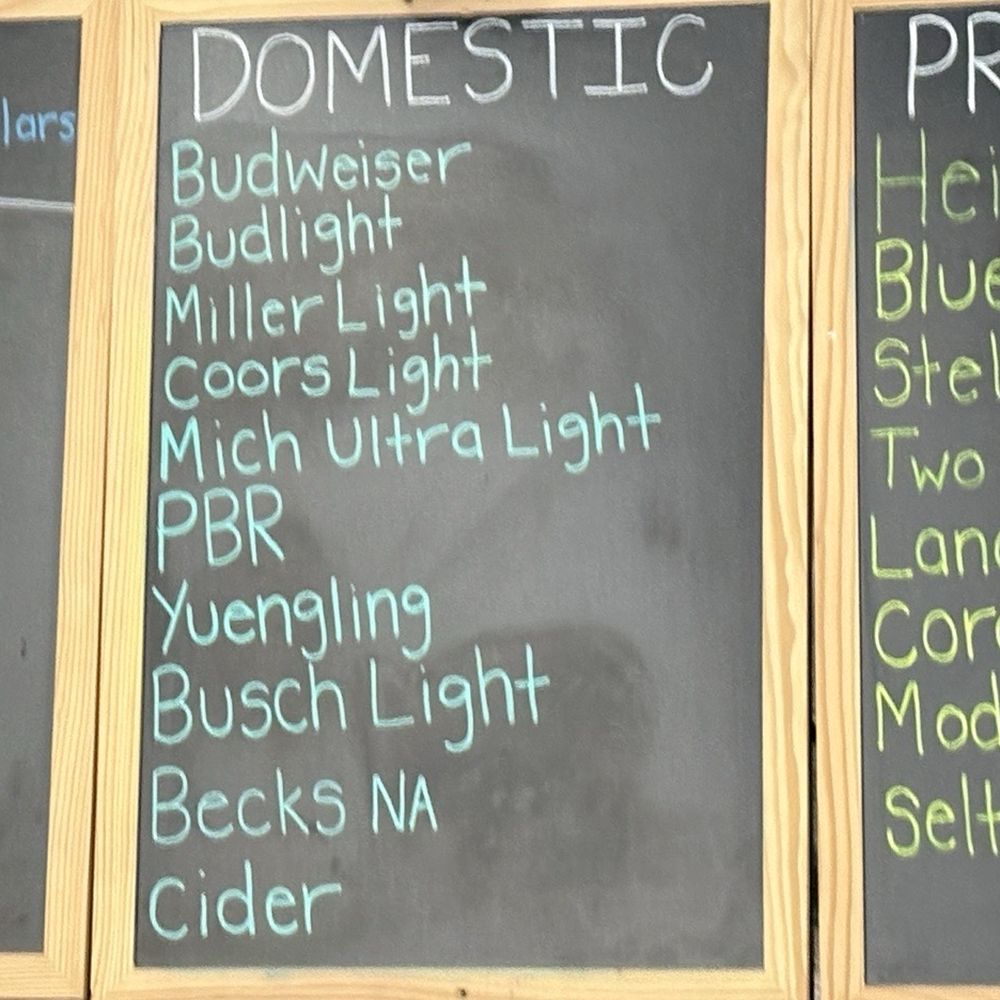 lars
DOMESTIC
Budweiser
Budlight
Miller Light
Coors Light
Mich Ultra Light
PBR
Yuengling
Busch Light
Becks NA
Cider
PR
Hei
Blue
Stel
Two
Lan
Cor
Mod
Selt